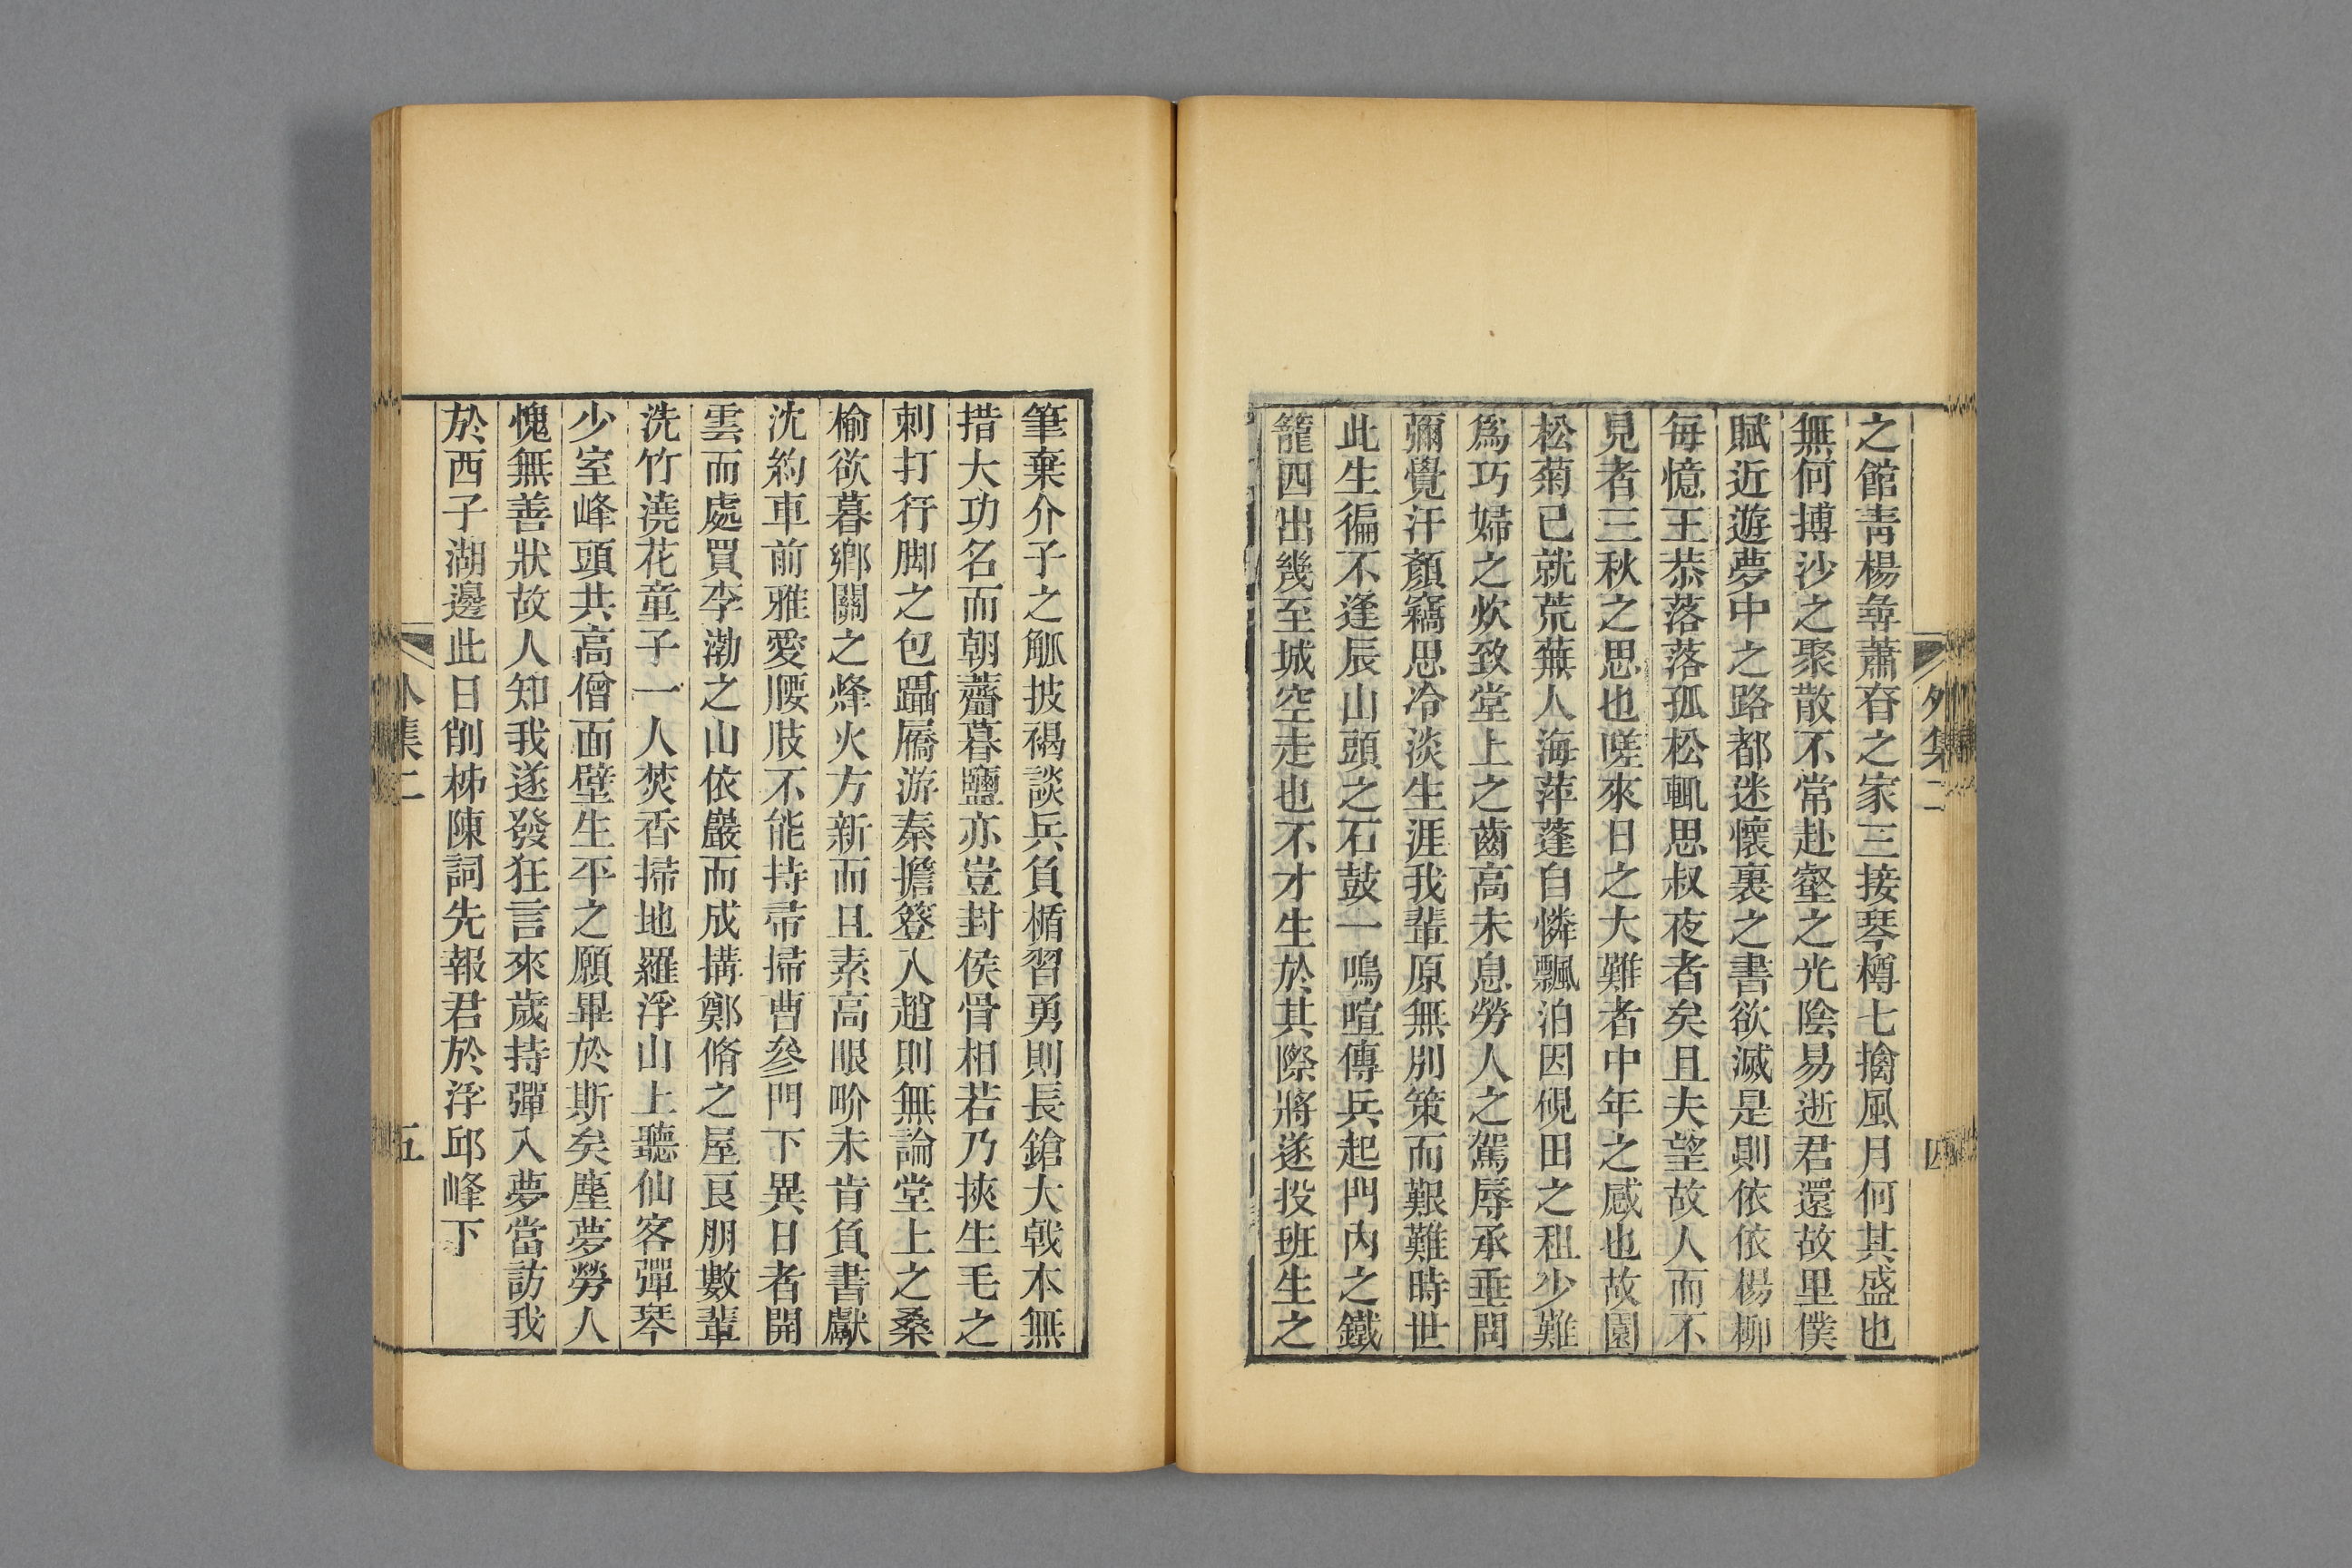 外集二
四
之館青楊彝蕭𦱤之家三接琴樽七擒風月何其盛也
無何搏沙之聚散不常赴壑之光陰易逝君還故里僕
賦近遊夢中之路都迷懷裏之書欲滅是則依依楊柳
每憶王恭落落孤松輒思叔夜者矣且夫望故人而不
見者三秋之思也嗟來日之大難者中年之感也故園
松菊已就荒蕪人海萍蓬自憐飄泊因硯田之租少難
爲巧婦之炊致堂上之齒高未息勞人之駕辱承垂問
彌覺汗顏竊思冷淡生涯我輩原無別策而艱難時世
此生徧不逢辰山頭之石鼓一鳴喧傳兵起門內之鐵
籠四出幾至城空走也不才生於其際將遂投班生之
筆棄介子之觚披褐談兵負楯習勇則長鎗大戟本無
措大功名而朝虀暮鹽亦豈封侯骨相若乃挾生毛之
刺打行脚之包躡屩游秦擔簦入趙則無論堂上之桑
榆欲暮鄉關之烽火方新而且素高眼吤未肯負書獻
沈約車前雅愛腰肢不能持帚掃曹參門下異日者開
雲而處買李渤之山依巖而成搆鄭脩之屋良朋數輩
洗竹澆花童子一人焚香掃地羅浮山上聽仙客彈琴
少室峰頭共高僧面壁生平之願畢於斯矣塵夢勞人
愧無善狀故人知我遂發狂言來歲持彈入夢當訪我
於西子湖邊此日削柹陳詞先報君於浮邱峰下
外集二
五